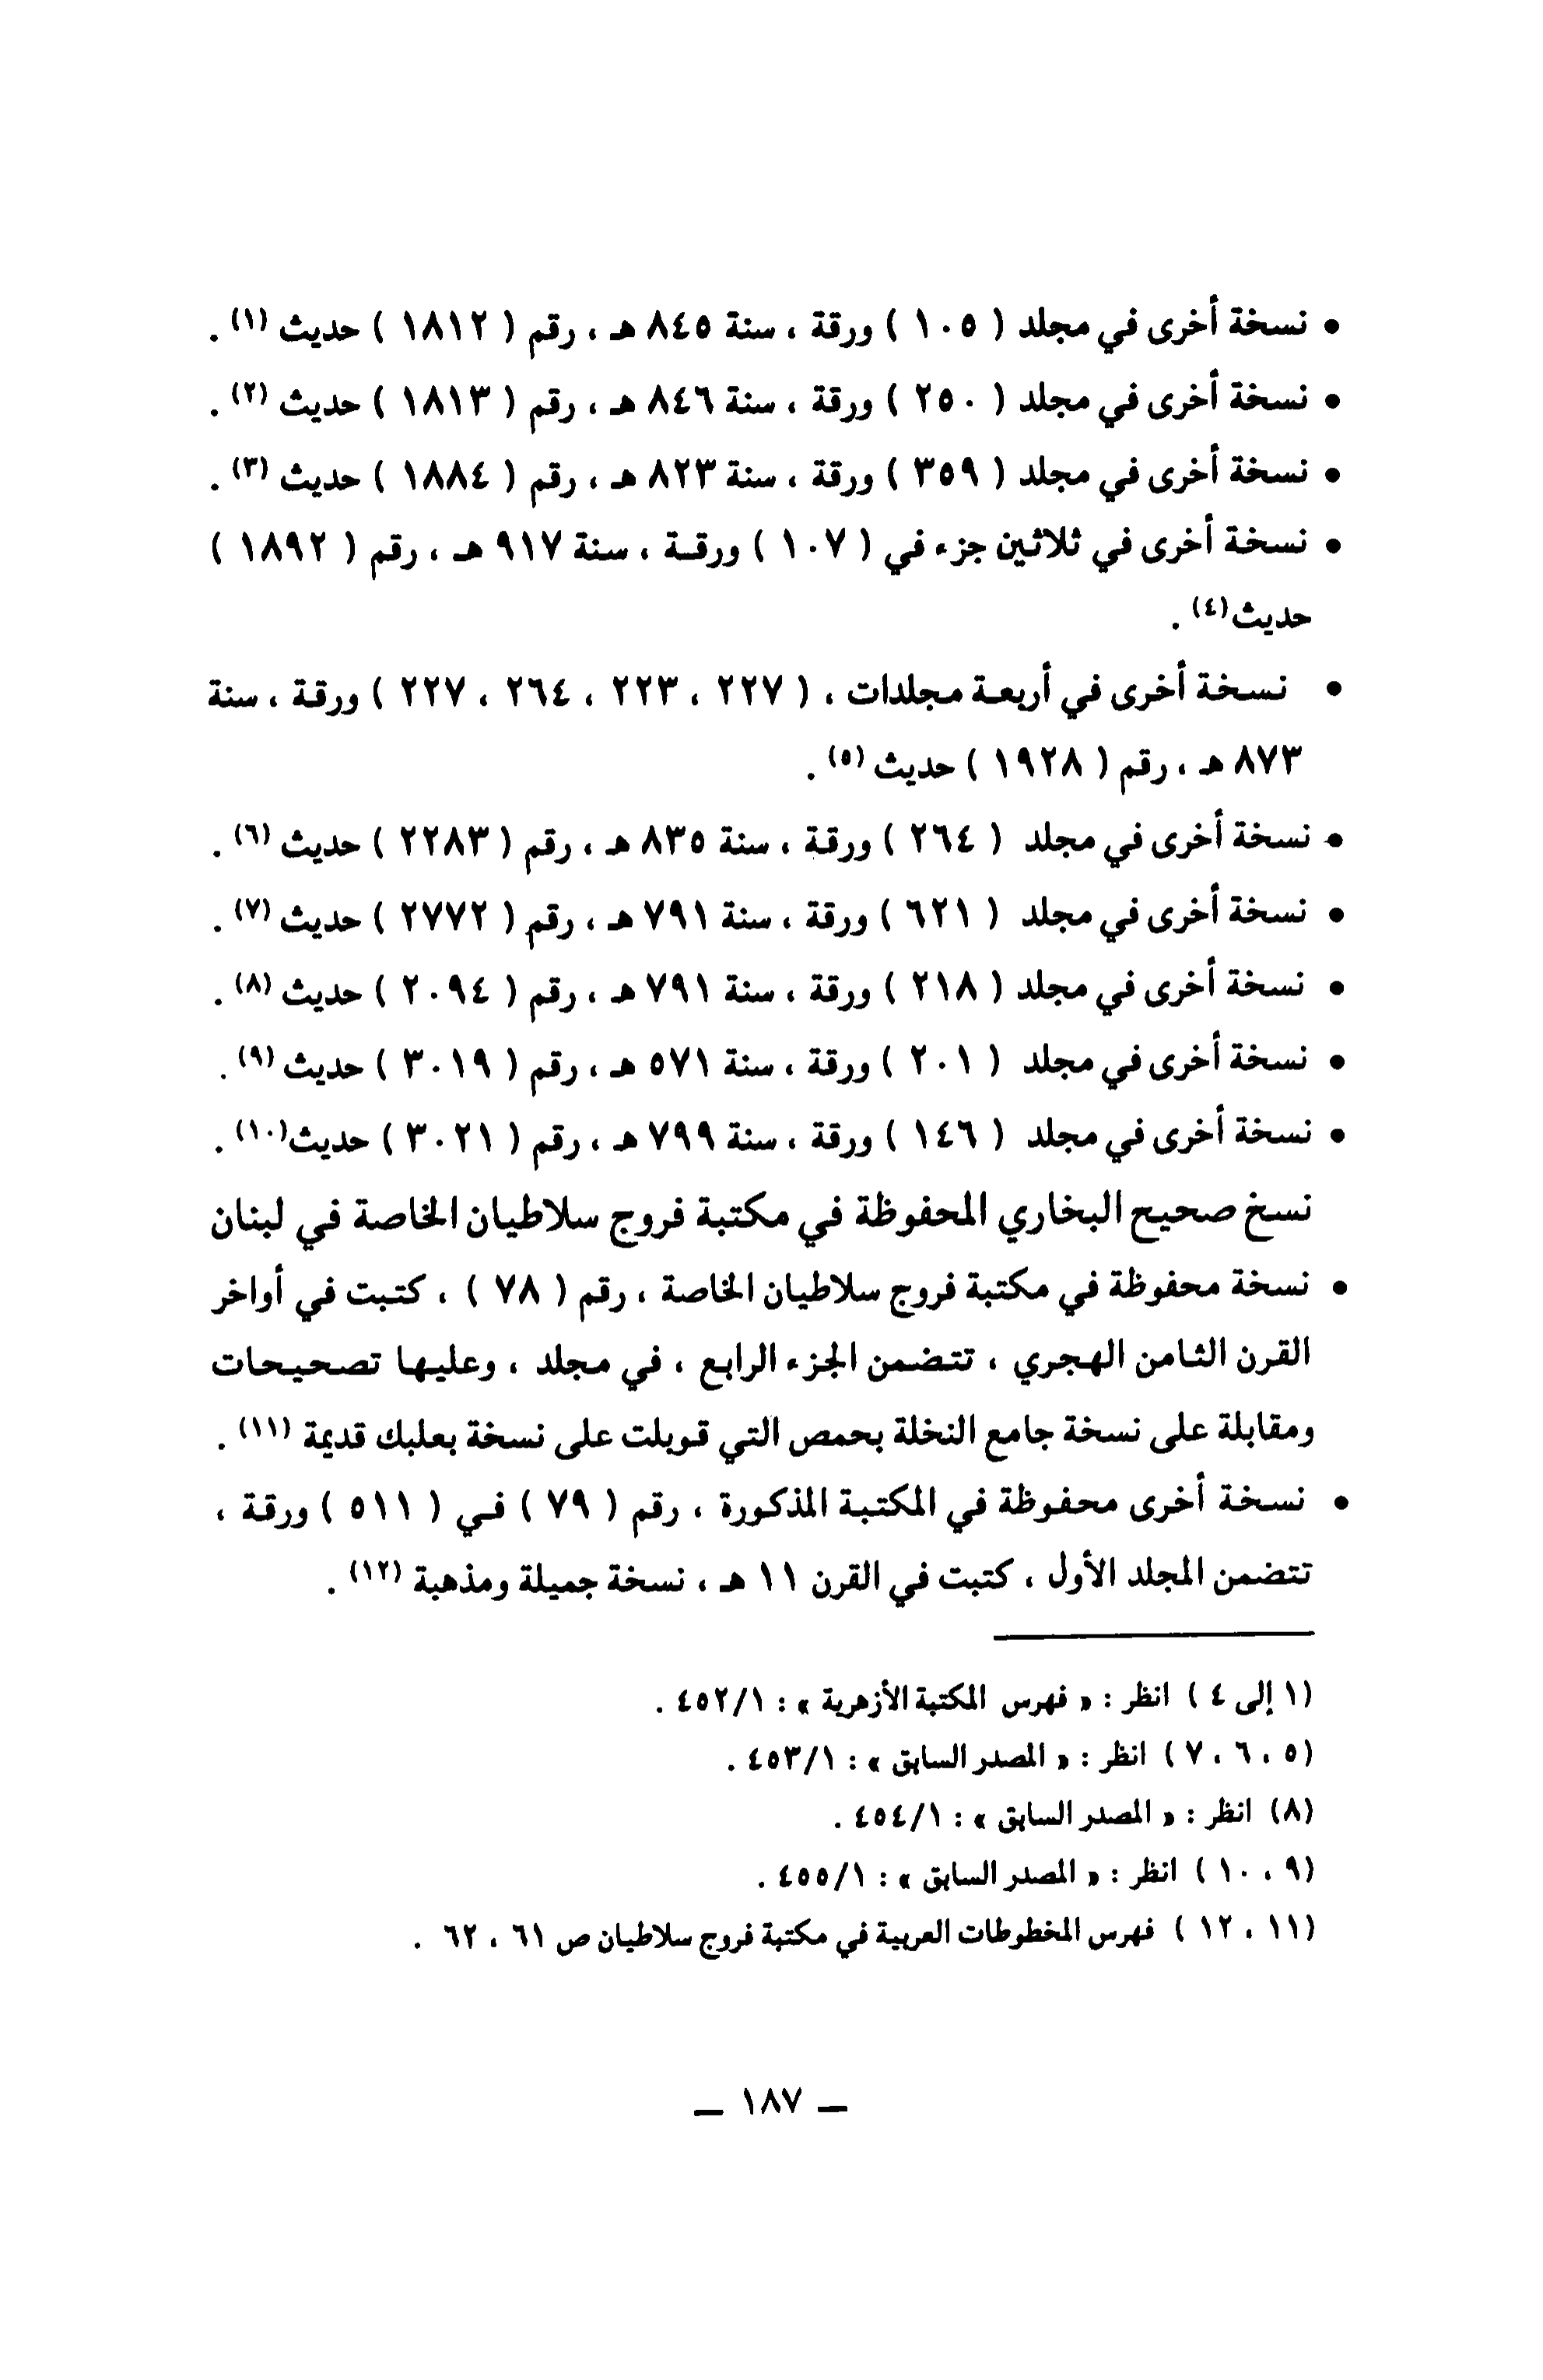 • نسخة أخرى في مجلد ( ١٠٥ ) ورقة ، سنة ٨٤٥ هـ ، رقم ( ١٨١٢ ) حديث (١) .
• نسخة أخرى في مجلد ( ٢٥٠ ) ورقة ، سنة ٨٤٦ هـ ، رقم ( ١٨١٣ ) حديث (٢) .
• نسخة أخرى في مجلد ( ٣٥٩ ) ورقة ، سنة ٨٢٣ هـ ، رقم ( ١٨٨٤ ) حديث (٣) .
• نسخة أخرى في ثلاثين جزء في ( ١٠٧ ) ورقة ، سنة ٩١٧ هـ ، رقم ( ١٨٩٢ )
حديث(٤) .
• نسخة أخرى في أربعة مجلدات ، ( ٢٢٧ ، ٢٢٣ ، ٢٦٤ ، ٢٢٧ ) ورقة ، سنة
٨٧٣ هـ ، رقم ( ١٩٢٨ ) حديث (٥) .
• نسخة أخرى في مجلد ( ٢٦٤ ) ورقة ، سنة ٨٣٥ هـ ، رقم ( ٢٢٨٣ ) حديث (٦) .
• نسخة أخرى في مجلد ( ٦٢١ ) ورقة ، سنة ٧٩١ هـ ، رقم ( ٢٧٧٢ ) حديث (٧) .
• نسخة أخرى في مجلد ( ٢١٨ ) ورقة ، سنة ٧٩١ هـ ، رقم ( ٢٠٩٤ ) حديث (٨) .
• نسخة أخرى في مجلد ( ٢٠١ ) ورقة ، سنة ٥٧١ هـ ، رقم ( ٣٠١٩ ) حديث (٩) .
• نسخة أخرى في مجلد ( ١٤٦ ) ورقة ، سنة ٧٩٩ هـ ، رقم ( ٣٠٢١ ) حديث(١٠) .
نسخ صحيح البخاري المحفوظة في مكتبة فروج سلاطيان الخاصة في لبنان
• نسخة محفوظة في مكتبة فروج سلاطيان الخاصة ، رقم ( ٧٨ ) ، كتبت في أواخر
القرن الثامن الهجري ، تتضمن الجزء الرابع ، في مجلد ، وعليها تصحيحات
ومقابلة على نسخة جامع النخلة بحمص التي قوبلت على نسخة بعلبك قديمة (١١) .
• نسخة أخرى محفوظة في المكتبة المذكورة ، رقم ( ٧٩ ) في ( ٥١١ ) ورقة ،
تتضمن المجلد الأول ، كتبت في القرن ١١ هـ ، نسخة جميلة ومذهبة (١٢) .
(١ إلى ٤ ) انظر : « فهرس المكتبة الأزهرية » : ٤٥٢/١ .
(٥ ، ٦ ، ٧ ) انظر : « المصدر السابق » : ٤٥٣/١ .
(٨) انظر : « المصدر السابق » : ٤٥٤/١ .
(٩ ، ١٠ ) انظر : « المصدر السابق » : ٤٥٥/١ .
(١١ ، ١٢ ) فهرس المخطوطات العربية في مكتبة فروج سلاطيان ص ٦١ ، ٦٢ .
— ١٨٧ —